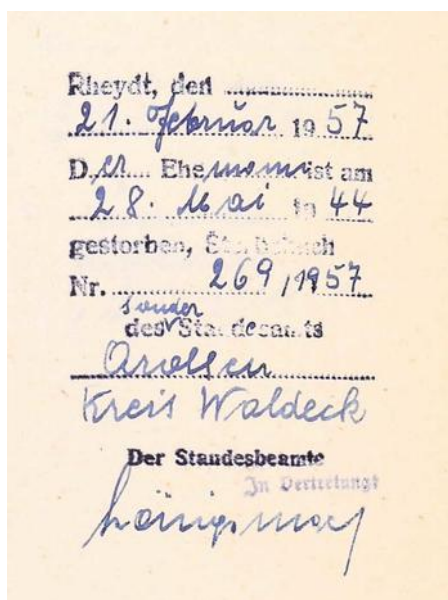 Rheydt, den
21. Februar 1957
Der Ehemann ist am
28. Mai 1944
gestorben, Sterbebuch
Nr. 269/1957
sonder
des Standesamts
Arolsen
Kreis Waldeck
Der Standesbeamte
In Vertretung: